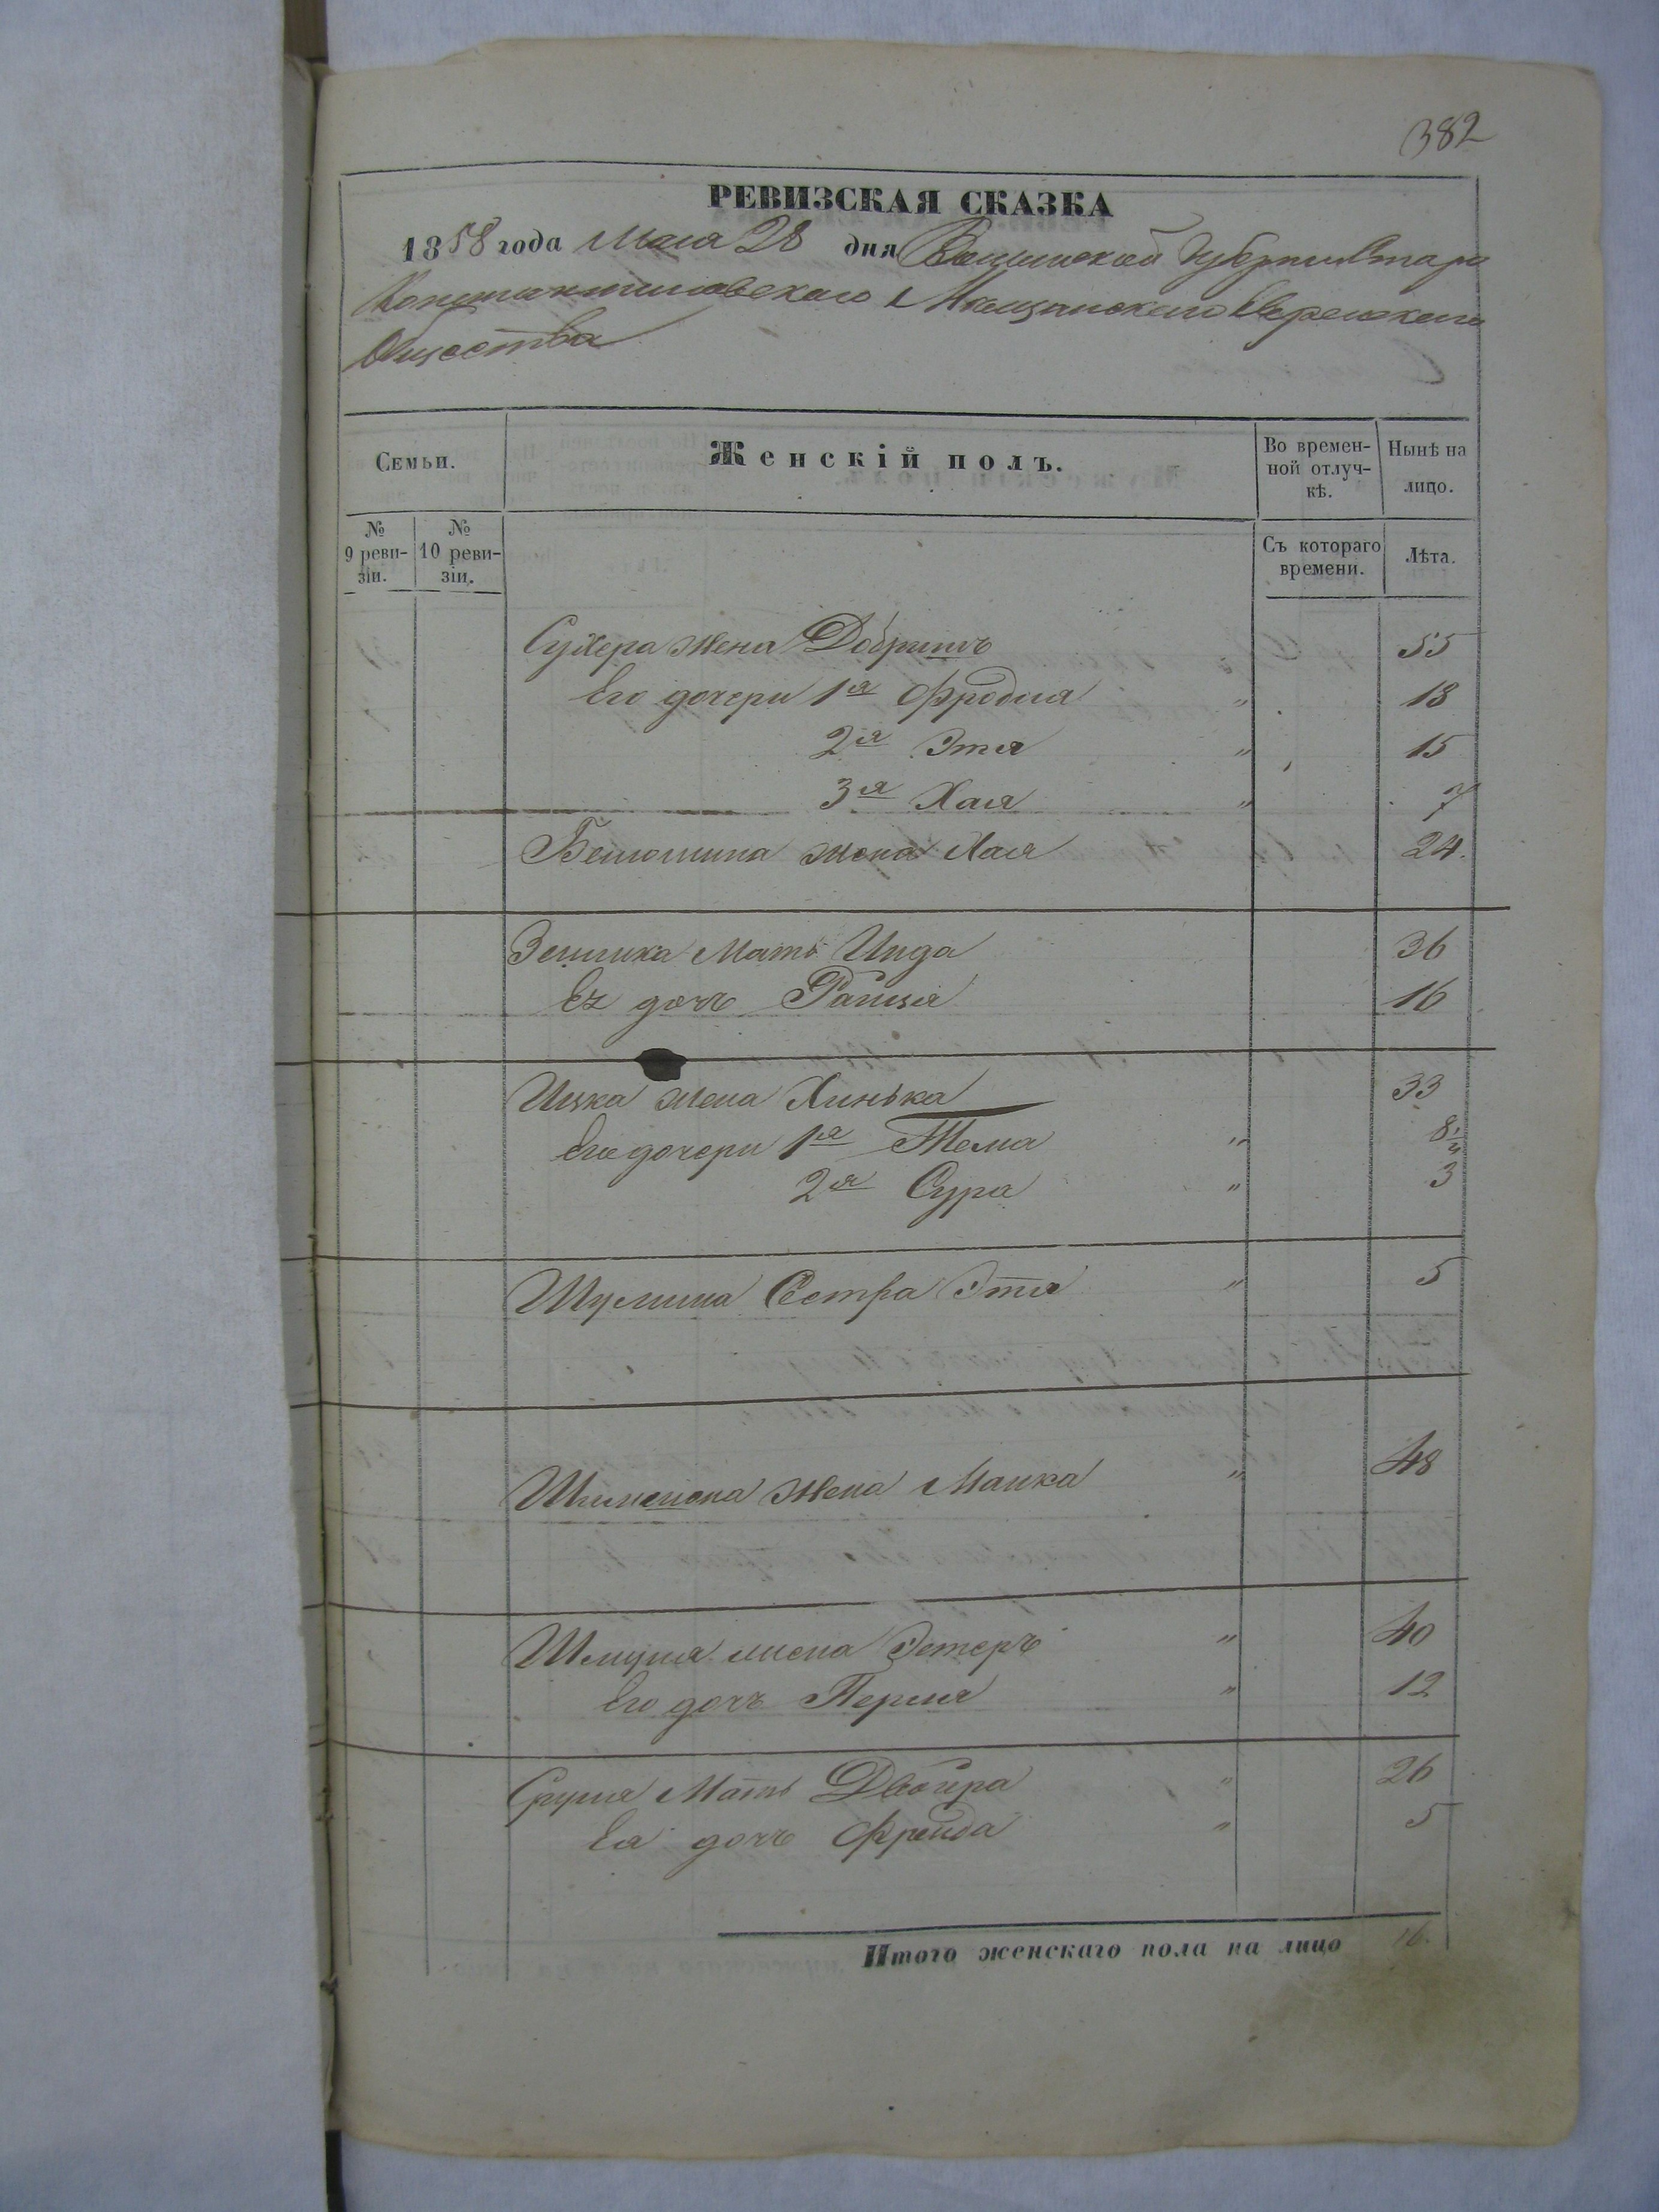 382
РЕВИЗСКАЯ СКАЗКА
1858 года Мая 28 дня Волынской Губернии Старо
Константиновскаго Мещанскаго Еврейскаго
Общества
Семьи.
Женскій полъ.
Во времен-
ной отлуч-
кѣ.
Нынѣ на
лицо.
№
9 реви-
зіи.
№
10 реви-
зіи.
Съ котораго
времени.
Лѣта.
жена Добришъ 55
Его дочери 1я Фройма " 18
2я Этя " 15
3я Хая " 7
жена Хая 24.
Зелика Мать Инда 36
Ея дочь Раища 16
Ицка жена Хинька 33
Его дочери 1я Тема " 8
2я Сура " 3
Шулима Сестра Этя " 5
Шимшона жена Манка " 48
Шмуля жена Эстеръ " 40
Его дочь Перля " 12
Сруля Мать Двойра " 26
Ея дочь Фрейда " 5
Итого женскаго пола на лицо 16.